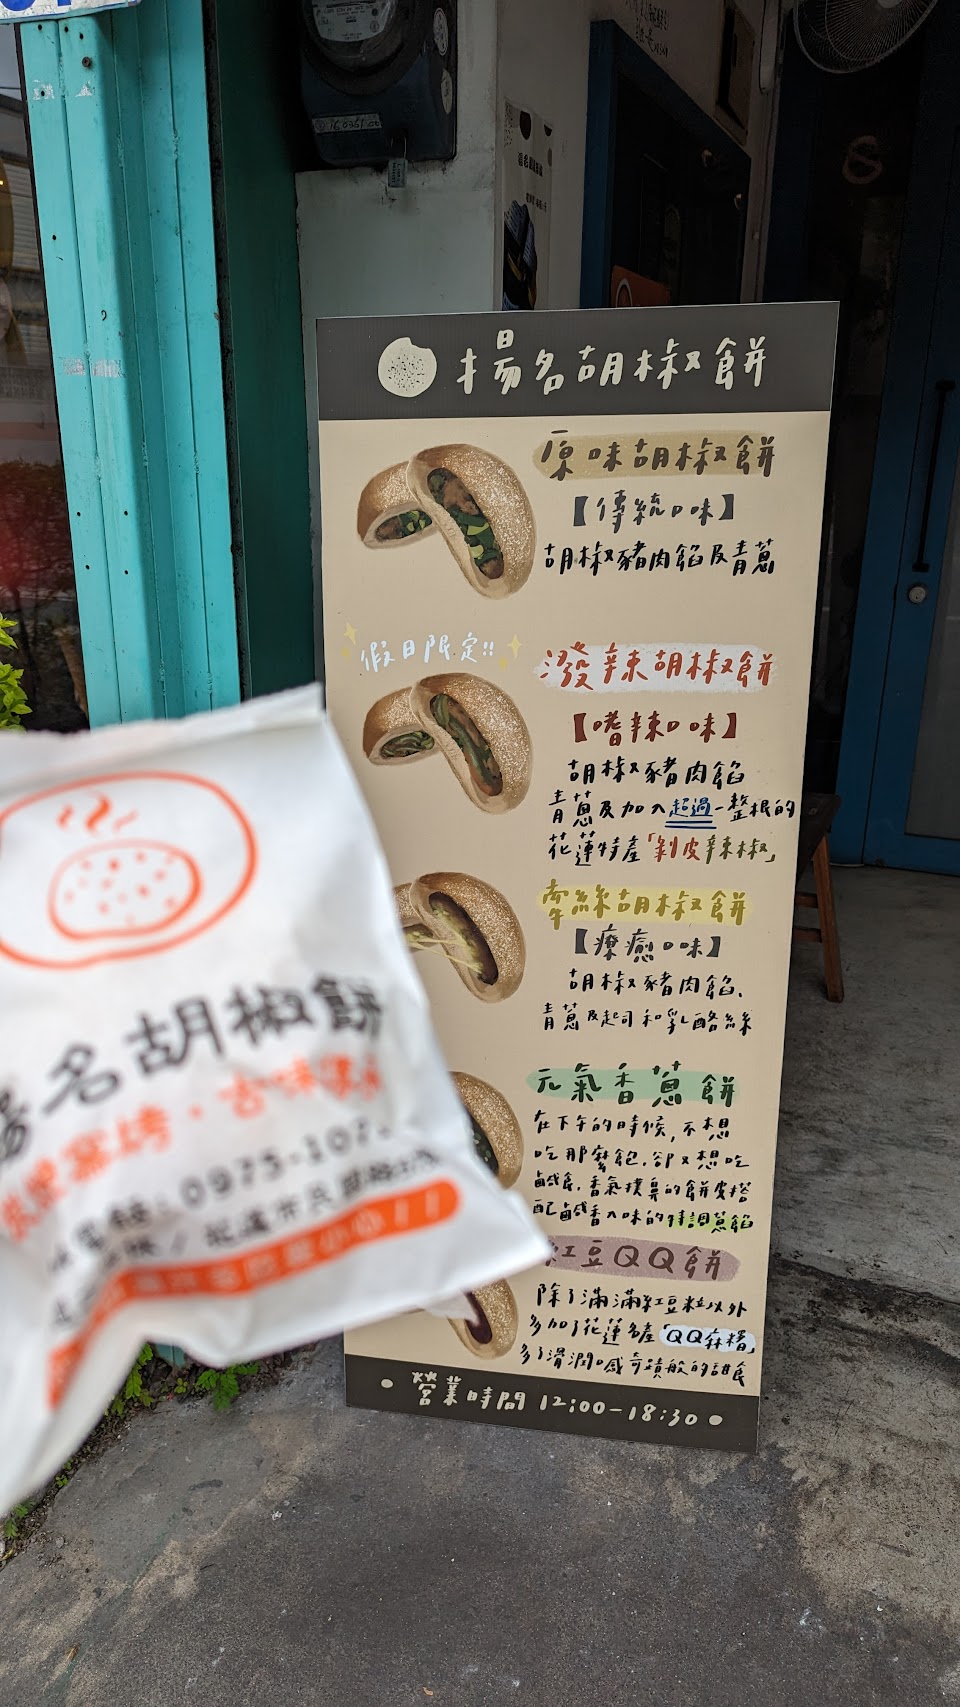 揚名胡椒餅
原味胡椒餅
【傳統口味】
胡椒豬肉餡及青蔥
假日限定!!
潑辣胡椒餅
【嗜辣口味】
胡椒豬肉餡
青蔥及加入超過一整根的
花蓮特產「剝皮辣椒」
牽絲胡椒餅
【療癒口味】
胡椒豬肉餡、
青蔥及起司和乳酪絲
元氣香蔥餅
在下午的時候,不想
吃那麼飽,卻又想吃
鹹食,香氣撲鼻的餅皮搭
配鹹香入味的特調蔥餡
紅豆QQ餅
除了滿滿紅豆粒以外
多加了花蓮名產「QQ麻糬」
多了滑潤口感奇蹟般的甜食
• 營業時間 12:00-18:30 •
揚名胡椒餅
窯烤·古味
0975-107